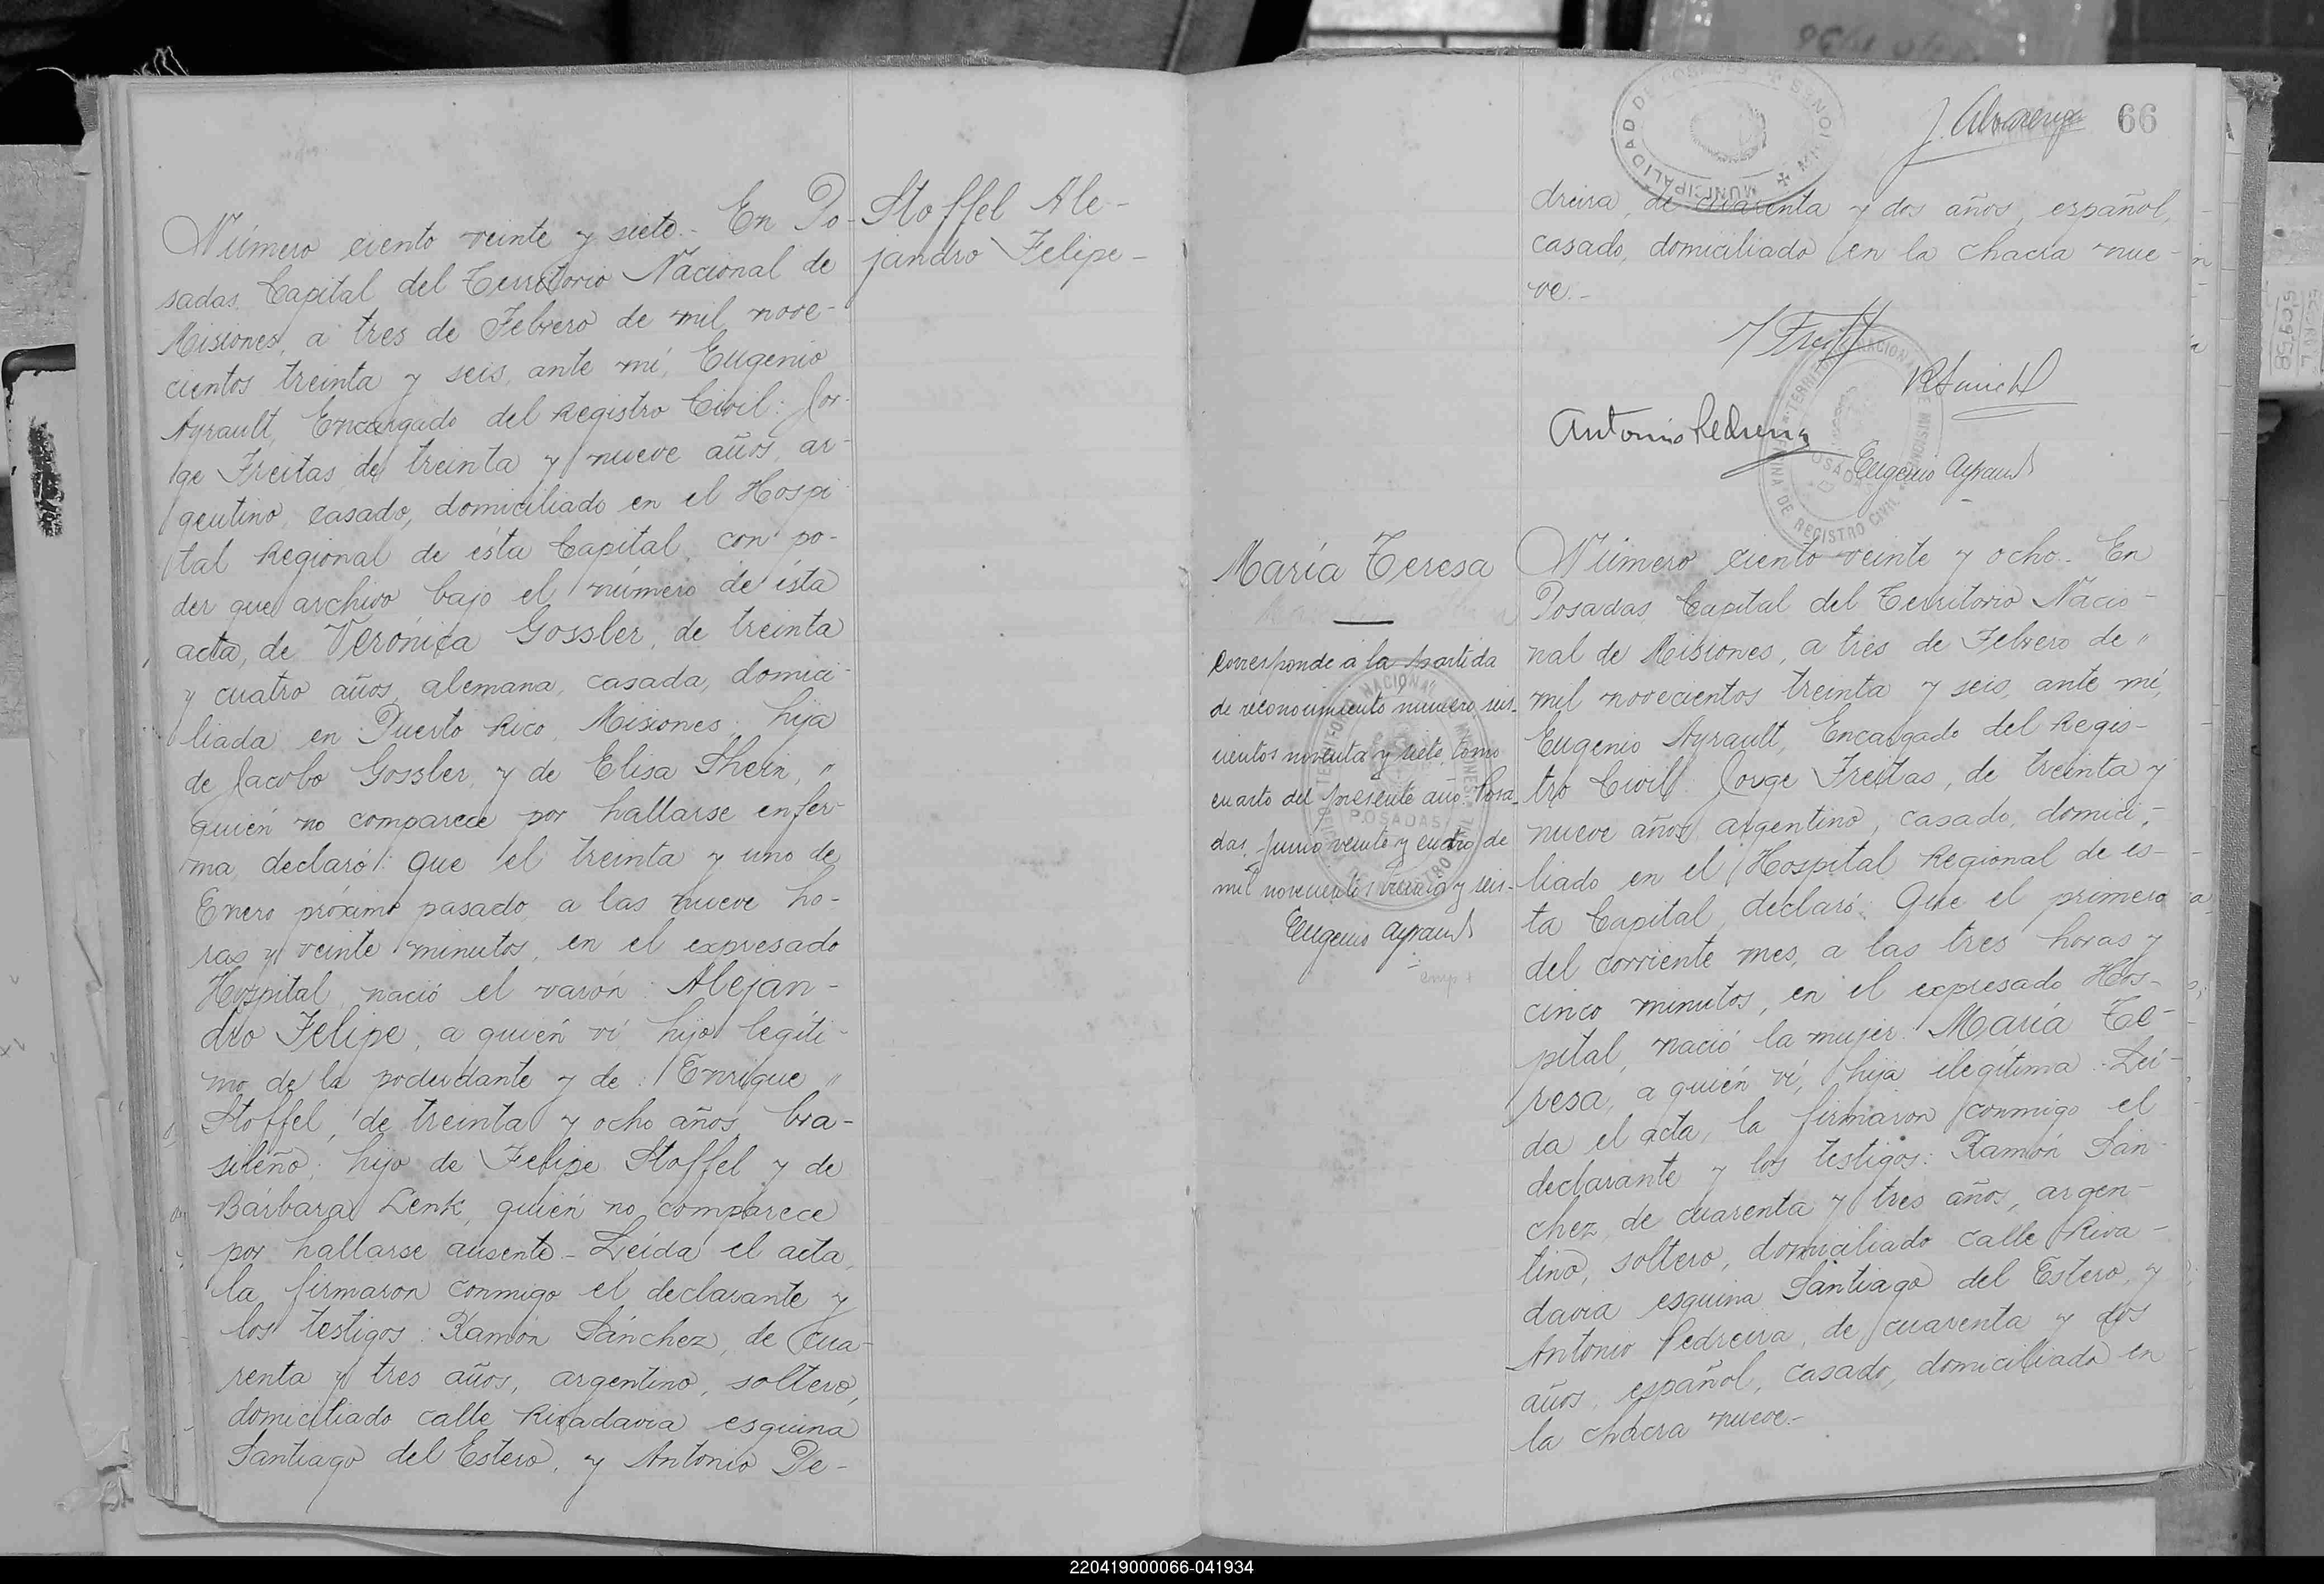 Número ciento veinte y siete.- En Po-
sadas, Capital del Territorio Nacional de
Misiones, a tres de Febrero de mil nove-
cientos treinta y seis, ante mí, Eugenio
Ayrault, Encargado del Registro Civil: Jor-
ge Freitas, de treinta y nueve años, ar-
gentino, casado, domiciliado en el Hospi-
tal Regional de ésta Capital, con po-
der que archivo bajo el número de ésta
acta, de Verónica Gossler, de treinta
y cuatro años, alemana, casada, domici-
liada en Puerto Rico, Misiones; hija
de Jacobo Gossler, y de Elisa Shein, "
quién no comparece por hallarse enfer-
ma, declaró: Que el treinta y uno de
Enero próximo pasado, a las nueve ho-
ras y veinte minutos, en el expresado
Hospital, nació el varón: Alejan-
dro Felipe, a quién ví, hijo legíti-
mo de la poderdante y de: Enrique "
Stoffel, de treinta y ocho años, bra-
sileño; hijo de Felipe Stoffel y de
Bárbara Lenk, quién no comparece
por hallarse ausente.- Leída el acta,
la firmaron conmigo el declarante y
los testigos: Ramón Sánchez, de cua-
renta y tres años, argentino, soltero,
domiciliado calle Rivadavia esquina
Santiago del Estero, y Antonio Pe-
Stoffel Ale-
jandro Felipe-
MUNICIPALIDAD DE POSADAS
MISIONES
J. Alvarenga
66
dreira, de cuarenta y dos años, español,
casado, domiciliado en la chacra nue-
ve.-
J Freitas
RSanchez
Antonio Pedreira
Eugenio Ayrault
TERRITORIO NACIONAL DE MISIONES
POSADAS
REGISTRO CIVIL
María Teresa
Corresponde a la partida
de reconocimiento número seis-
cientos noventa y siete, tomo
cuarto del presente año. Posa-
das, Junio veinte y cuatro de
mil novecientos treinta y seis-
Eugenio Ayrault
POSADAS
Número ciento veinte y ocho.- En
Posadas, Capital del Territorio Nacio-
nal de Misiones, a tres de Febrero de "
mil novecientos treinta y seis, ante mí,
Eugenio Ayrault, Encargado del Regis-
tro Civil: Jorge Freitas, de treinta y
nueve años, argentino, casado, domici-
liado en el Hospital Regional de és-
ta Capital, declaró: Que el primero
del corriente mes, a las tres horas y
cinco minutos, en el expresado Hos-
pital, nació la mujer: María Te-
resa, a quién ví, hija ilegítima. Leí-
da el acta, la firmaron conmigo el
declarante y los testigos: Ramón Sán-
chez, de cuarenta y tres años, argen-
tino, soltero, domiciliado calle Riva-
davia esquina Santiago del Estero, y
Antonio Pedreira, de cuarenta y dos
años, español, casado, domiciliado en
la chacra nueve.-
220419000066-041934